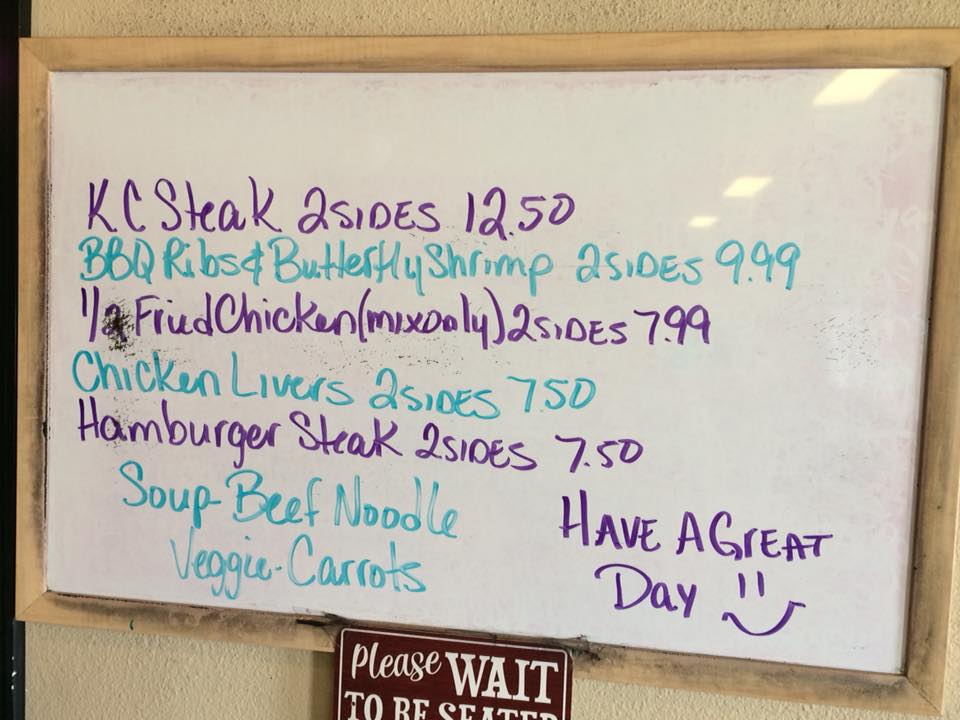 KC Steak 2SIDES 12.50
BBQ Ribs & Butterfly Shrimp 2SIDES 9.99
1/2 Fried Chicken (mix only) 2SIDES 7.99
Chicken Livers 2SIDES 7.50
Hamburger Steak 2SIDES 7.50
Soup-Beef Noodle
Veggie-Carrots
HAVE A GrEAT
Day
Please WAIT
TO BE SEATED